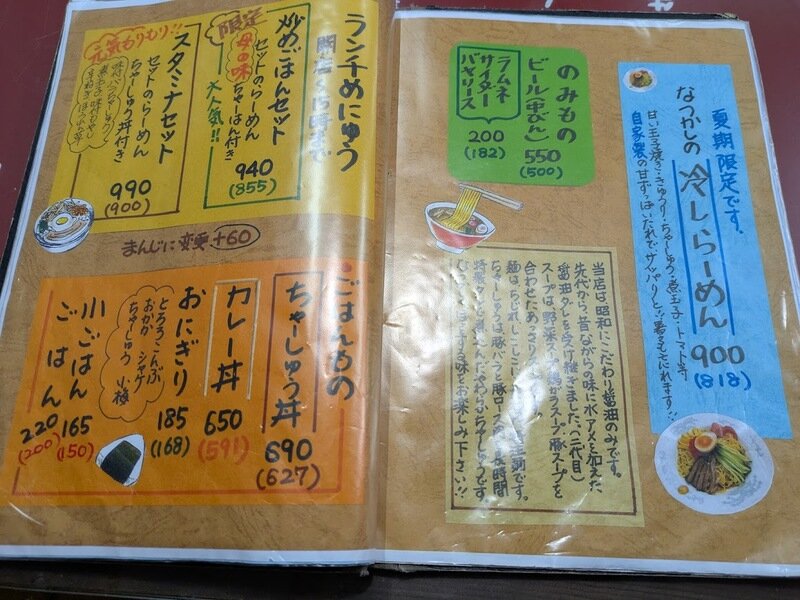 夏期限定です。
なつかしの
冷しらーめん
900
(818)
甘い玉子焼き・きゅうり・ちゃーしゅう・煮玉子・トマト等
自家製の甘ずっぱいたれで、サッパリと!!
のみもの
ビール(中びん)
550
(500)
ラムネ
サイダー
バヤリース
200
(182)
当店は昭和にこだわり醤油のみです。
先代から、昔ながらの味に水アメを加えた
醤油タレを受け継ぎました(二代目)
スープは野菜スープ、鶏がらスープ、豚スープを
合わせたあっさり
麺はちぢれ
ちゃーしゅうは豚バラと豚ロース
味をお楽しみ下さい!!
ランチめにゅう
開店〜15時まで
炒めごはんセット
限定
母の味
セットのらーめん
ちゃーはん付き
大人気!!
940
(855)
元気もりもり!!
スタミナセット
セットのらーめん
ちゃーしゅう丼付き
990
(900)
まんじに変更 +60
ごはんもの
ちゃーしゅう丼
690
(627)
カレー丼
650
(591)
おにぎり
とろろこんぶ
おかか シャケ
ちゃーしゅう 小梅
185
(168)
小ごはん
165
(150)
ごはん
220
(200)